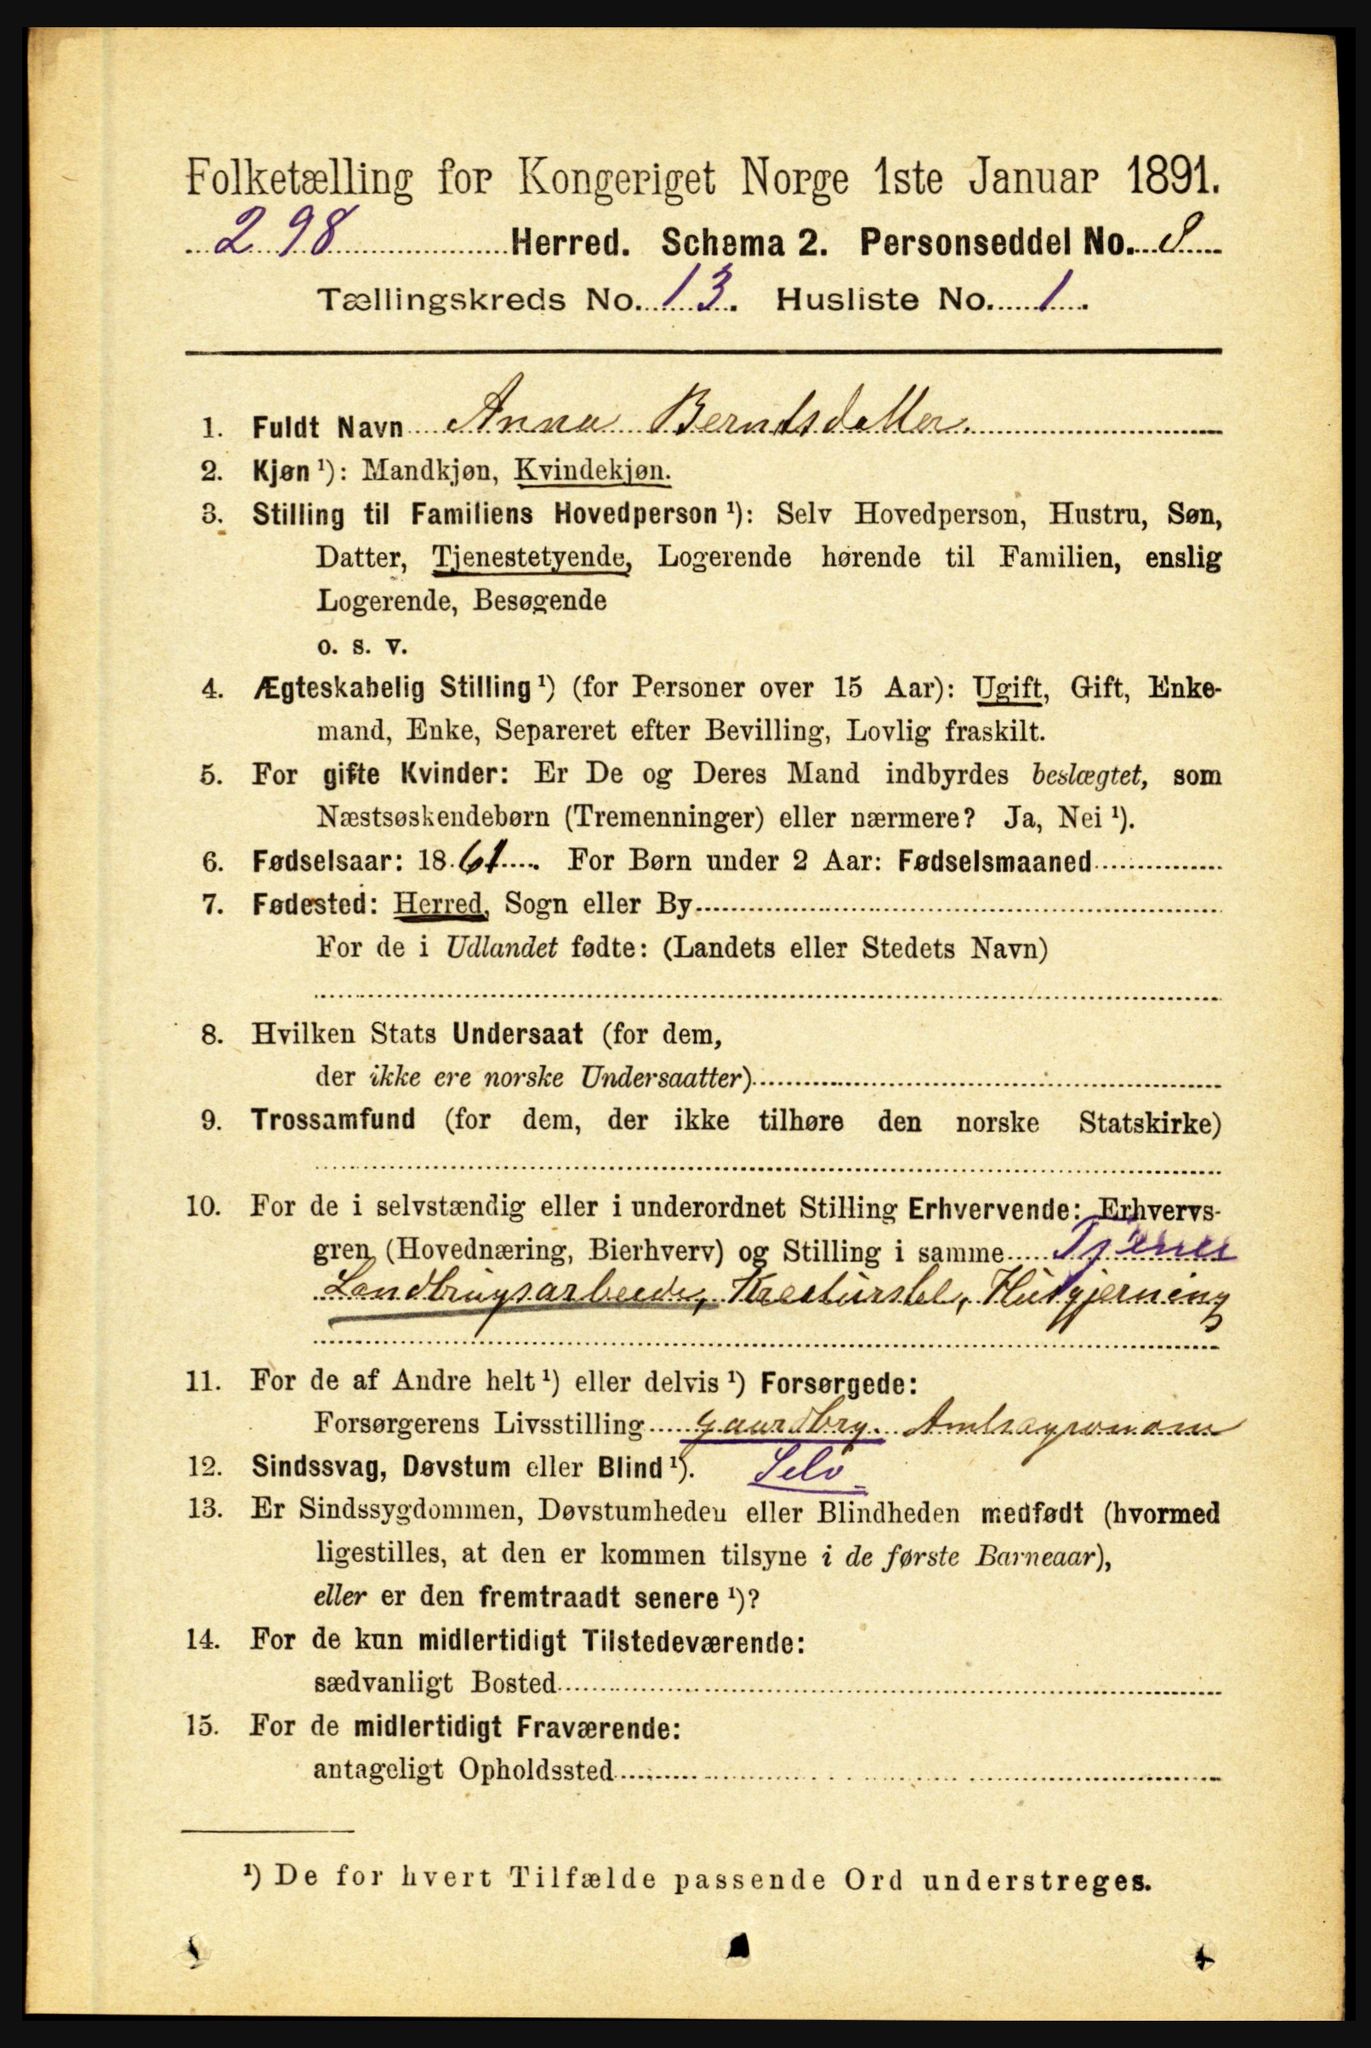 Folketælling for Kongeriget Norge 1ste Januar 1891.
298 Herred. Schema 2. Personseddel No. 8
Tællingskreds No. 13. Husliste No. 1.
1. Fuldt Navn Anna Berndsdatter
2. Kjøn ¹): Mandkjøn, Kvindekjøn.
3. Stilling til Familiens Hovedperson ¹): Selv Hovedperson, Hustru, Søn,
Datter, Tjenestetyende, Logerende hørende til Familien, enslig
Logerende, Besøgende
o. s. v.
4. Ægteskabelig Stilling ¹) (for Personer over 15 Aar): Ugift, Gift, Enke-
mand, Enke, Separeret efter Bevilling, Lovlig fraskilt.
5. For gifte Kvinder: Er De og Deres Mand indbyrdes beslægtet, som
Næstsøskendebørn (Tremenninger) eller nærmere? Ja, Nei ¹).
6. Fødselsaar: 1861. For Børn under 2 Aar: Fødselsmaaned
7. Fødested: Herred, Sogn eller By
For de i Udlandet fødte: (Landets eller Stedets Navn)
8. Hvilken Stats Undersaat (for dem,
der ikke ere norske Undersaatter)
9. Trossamfund (for dem, der ikke tilhøre den norske Statskirke)
10. For de i selvstændig eller i underordnet Stilling Erhvervende: Erhvervs-
gren (Hovednæring, Bierhverv) og Stilling i samme Tjener
Landbrugsarbeide, Kreaturstel, Husgjerning
11. For de af Andre helt ¹) eller delvis ¹) Forsørgede:
Forsørgerens Livsstilling gaardbrg. Amtsagronom
12. Sindssvag, Døvstum eller Blind ¹). Selv
13. Er Sindssygdommen, Døvstumheden eller Blindheden medfødt (hvormed
ligestilles, at den er kommen tilsyne i de første Barneaar),
eller er den fremtraadt senere ¹)?
14. For de kun midlertidigt Tilstedeværende:
sædvanligt Bosted
15. For de midlertidigt Fraværende:
antageligt Opholdssted
¹) De for hvert Tilfælde passende Ord understreges.